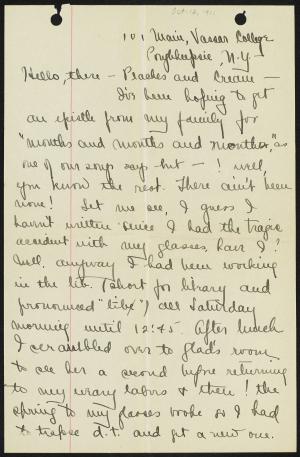 Oct. 12, 1911
101 Main, Vassar College
Poughkeepsie, N.Y.
Hello, there - Peaches and Cream -
I've been hoping to get
an epistle from my family for
"months and months and months," as
one of our songs says - but - ! Well,
you know the rest. There ain't been
none! Let me see, I guess I
haven't written since I had the tragic
accident with my glasses, have I?
Well, anyway I had been working
in the lib. (short for library and
pronounced "libe") all Saturday
morning until 12:45. After lunch
I scrambled over to Glad's room
to see her a second before returning
to my weary labors & then! the
spring to my glasses broke so I had
to trapse d.t. and get a new one.